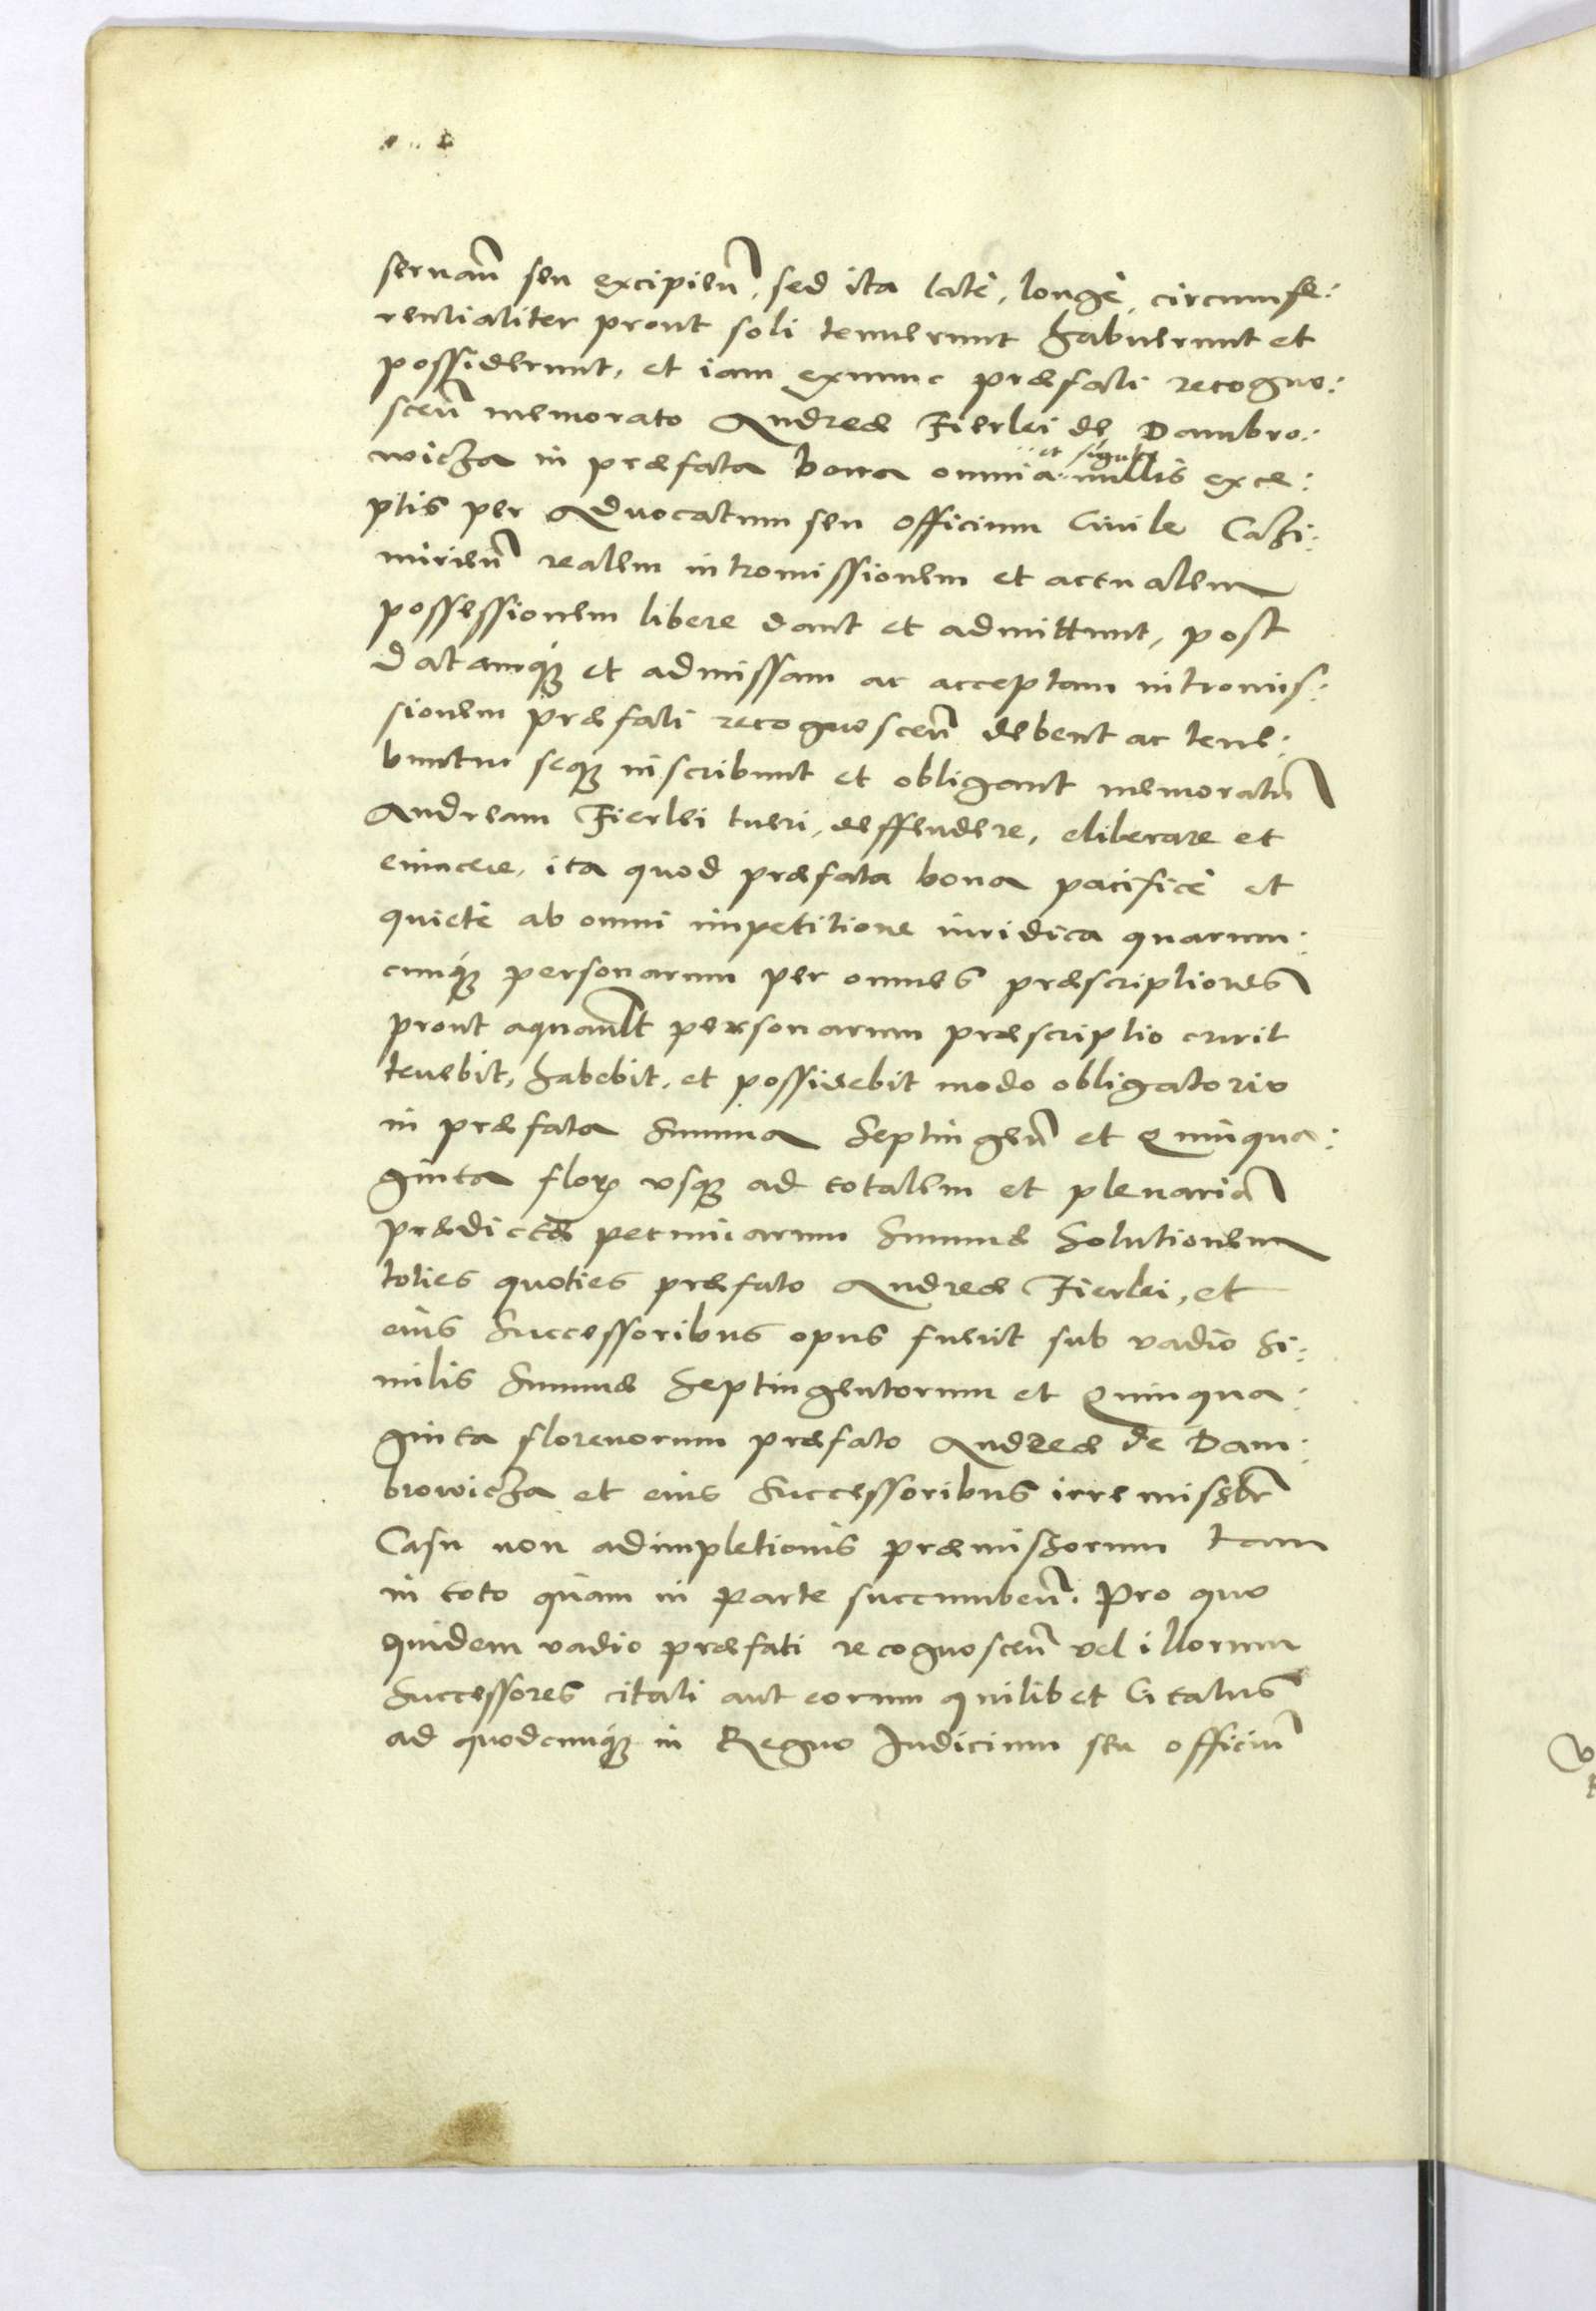 seruan̄ seu excipien̄, sed ita latè, longè, circumfe:
rentialiter prout soli tenuerunt habuerunt et
possiderunt, et iam exnunc præfati recogno:
scen̄ memorato Andreæ Fierlei de Dambro:
wicza in præfata bona omnia et singula nullis exce:
ptis per Aduocatum seu officium Ciuile Cazi:
mirien̄ realem intromissionem et actualem
possessionem libere dant et admittunt, post
Datamq́ꝫ et admissam ac acceptam intromis:
sionem præfati recognoscen̄ debent ac tene:
buntur seqꝫ inscribunt et obligant memoratū
Andream Fierlei tueri, deffendere, eliberare et
euincere, ita quod præfata bona pacificè et
quietè ab omni impetitione iuridica quarum:
cunq́ꝫ personarum per omnes præscriptiones
prout aquault personarum præscriptio erit
tenebit, habebit, et possidebit modo obligatorio
in præfata Summa Septingen̄ et Quinqua:
ginta flor̄ vsqꝫ ad totalem et plenariā
prædictæ pecuniarum Summæ Solutionem
toties quoties præfato Andreæ Fierlei, et
eius Successoribus opus fuerit sub vadio Si:
milis Summæ Septingentorum et Quinqua:
ginta florenorum præfato Andreæ de Dam:
browicza et eius Successoribus irremiszbr̄
Casu non adimpletionis præmiszorum tam
in toto quam in parte succumben̄. Pro quo
quidem vadio præfati recognoscen̄ vel illorum
Successores citati aut eorum quilibet Citatus
ad quodcunq́ꝫ in Regno Judicium seu officiū